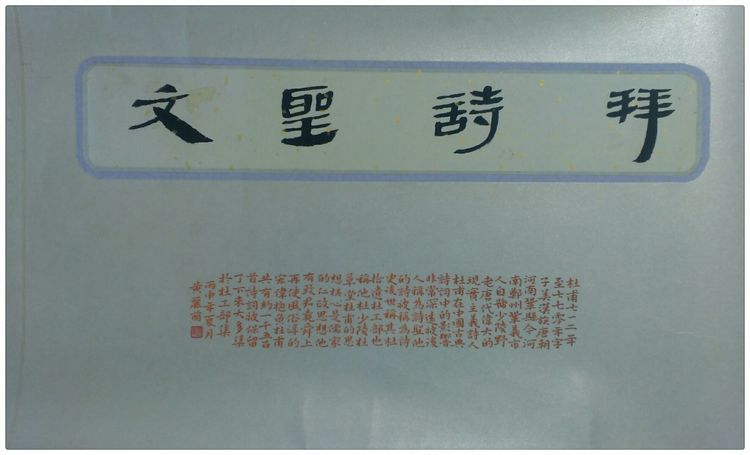 拜詩聖文
杜甫七一二年
至七七零年字
子美漢族唐朝
河南鞏縣今河
南鄭州鞏義市
人自號少陵野
老唐代偉大的
現實主義詩人
杜甫在中國古典
詩詞中的影響
非常深遠被後
人稱為詩聖他
的詩被稱為詩
史後世稱其杜
拾遺杜工部也
稱他杜少陵杜
草堂杜甫的思
想核心是儒家
的仁政思想他
有致君堯舜上
再使風俗淳的
宏偉抱負杜甫
共有約一千五百
首詩詞被保留
了下來大多集
於杜工部集
丙申年夏月